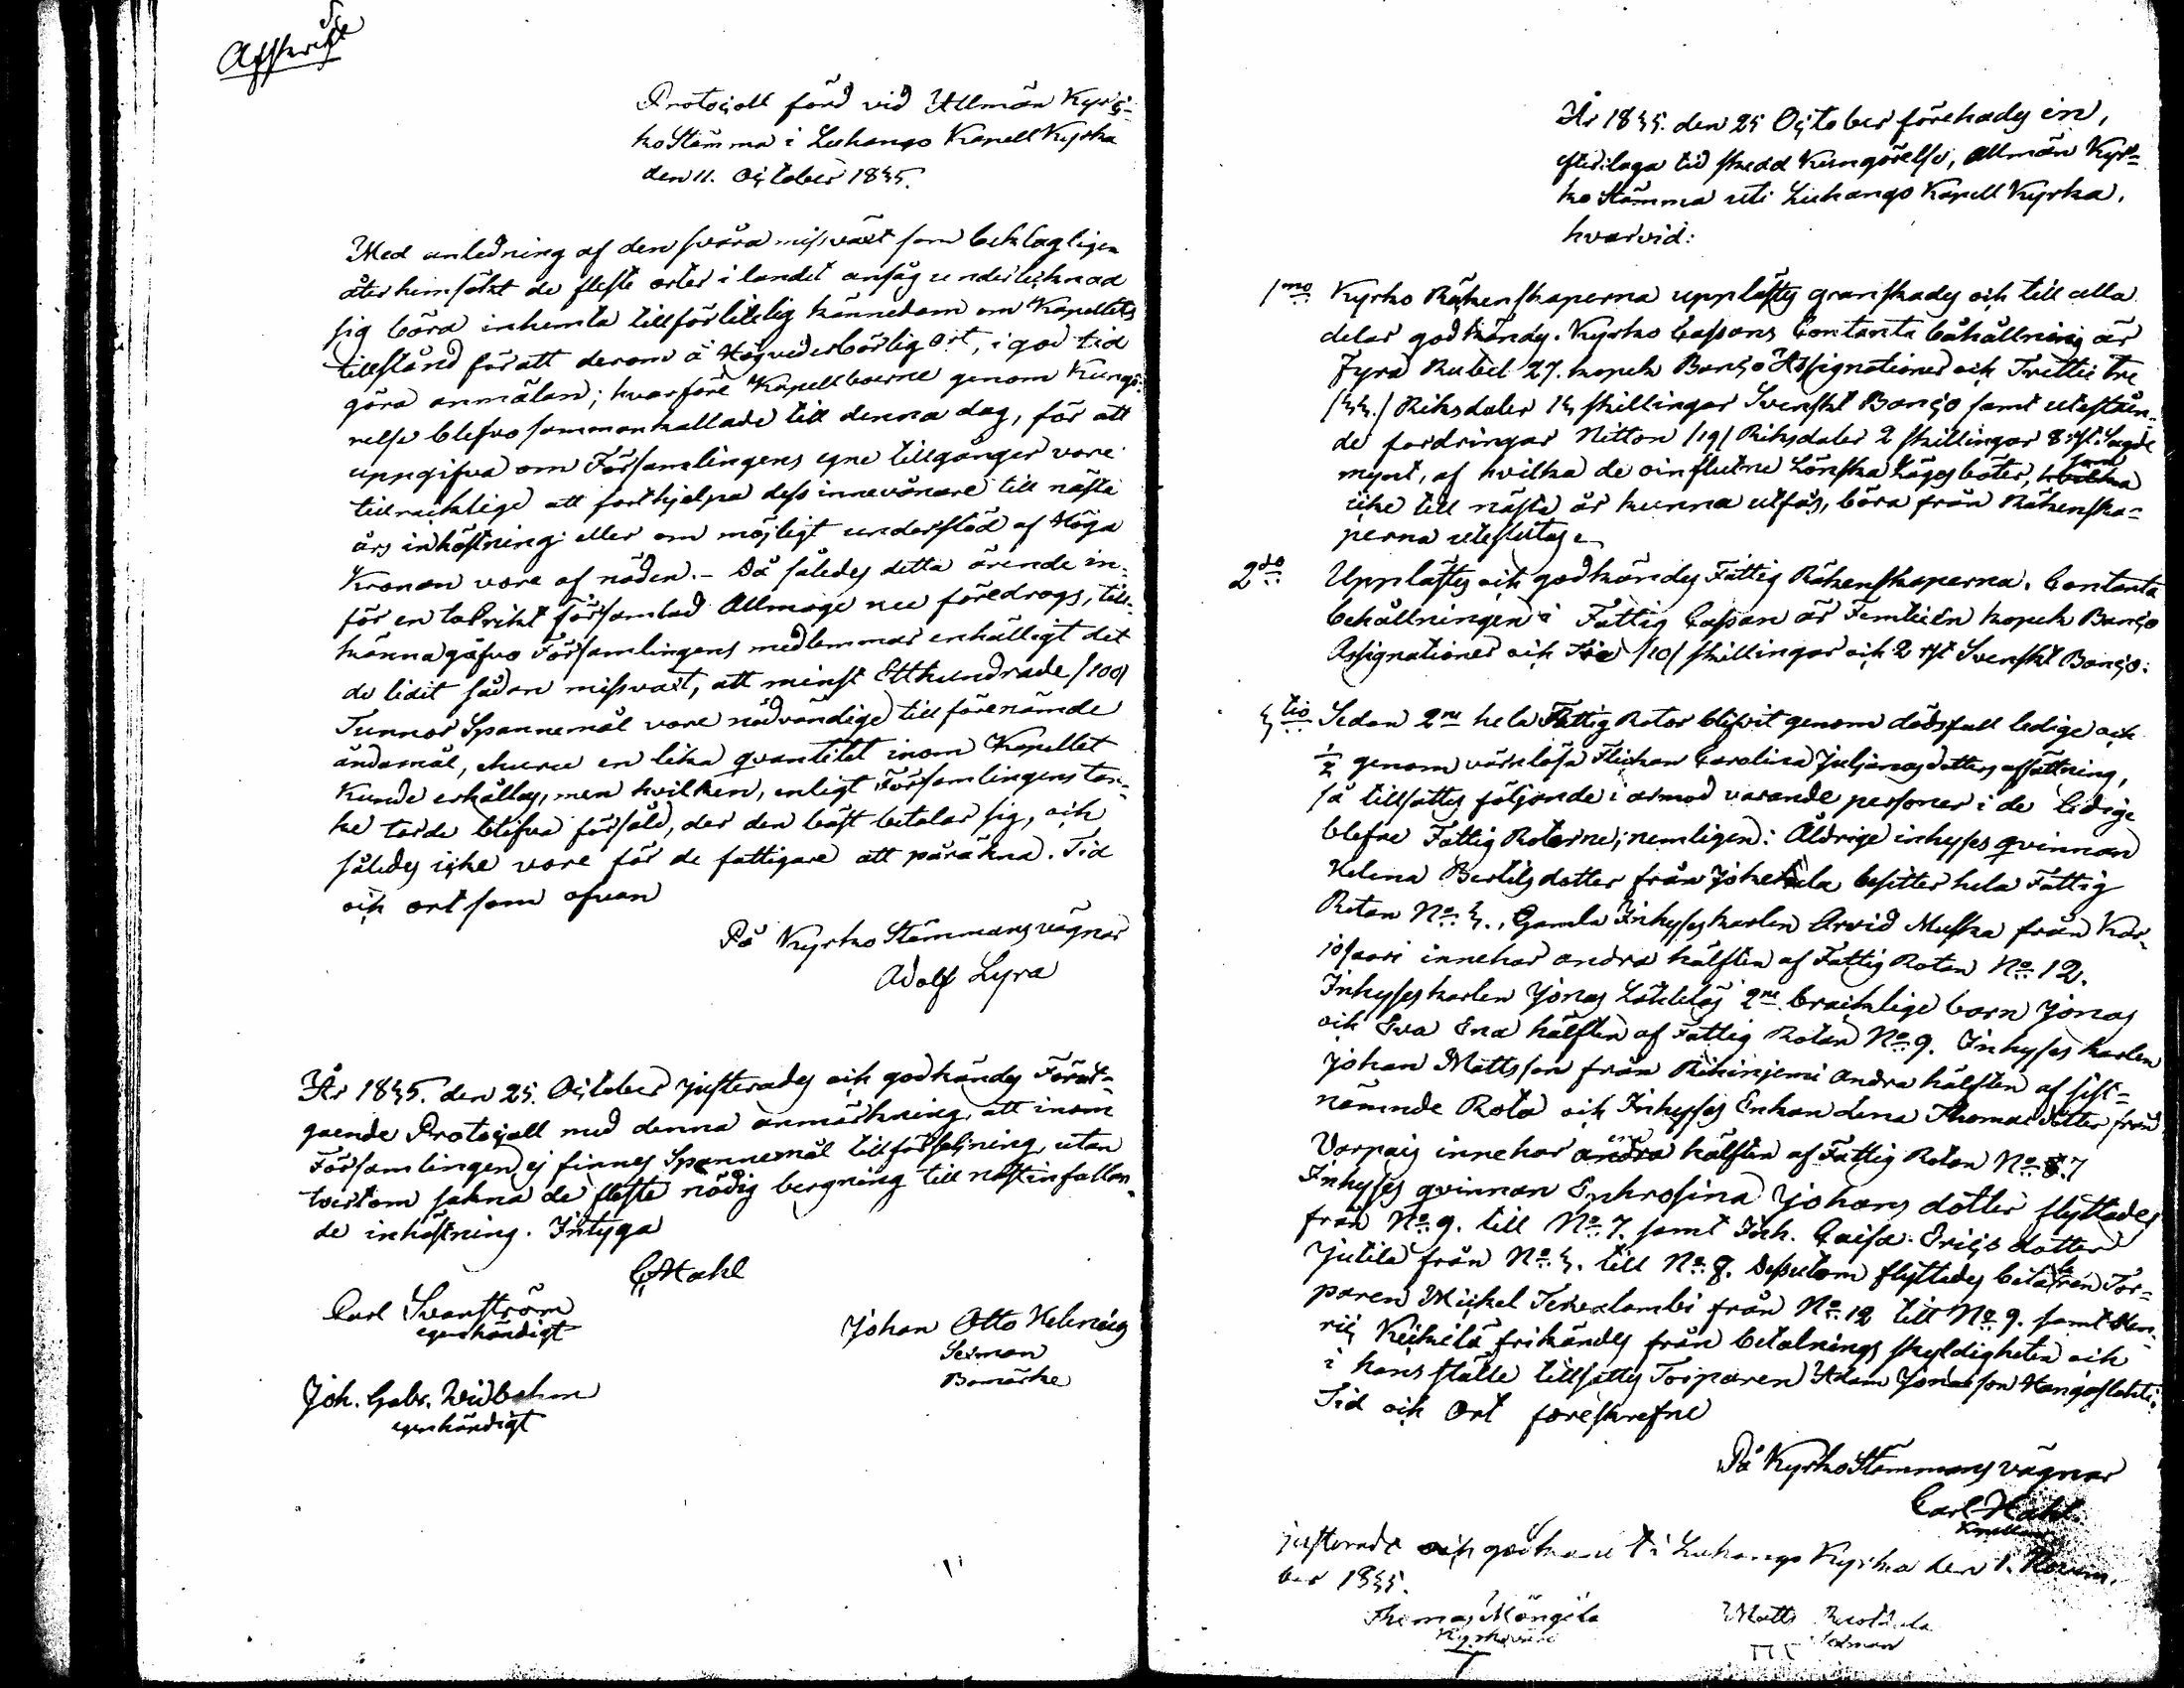 Afskrift
Protocoll förd vid Allmän Kyr-
ko Stämma i Luhango Kapell Kyrka
den 11. October 1835.
Med anledning af den svåra missväxt som beklagligen
åter hemsökt de fleste orter i landet ansåg undertecknad
sig böra inhemta tillförlitelig kännedom om Kapellets
tillstånd för att derom å Högvederbörlig ort, i god tid
göra anmälan; hvarföre Kapellboerne genom Kungö-
relse blefvo sammankallade till denna dag, för att
uppgifva om Församlingens egne tillgånger vore
tillräcklige att forthjelpa dess innevånare till nästa
års inhöstning eller om möjligt understöd af Höga
Kronan vore af nöden. - Då således detta ärende in-
för en talrikt församlad Allmoge nu föredrogs, till-
känna gåfvo Församlingens medlemmar enhälligt det
de lidit sådan missvaxt, att minst Etthundrade /100/
Tunnor Spannemål vore nödvändige till förenämde
ändamål, ehuru en lika qvantitet inom Kapellet
kunde erhållas, men hvilken, enligt Församlingens tan-
ke torde blifva försåld, der den bäst betalar sig, och
således icke vore för de fattigare att påräkna. Tid
och ort som ofvan
På Kyrko Stämmans vägnar
Adolf Lyra
År 1835. den 25. October justerades och godkändes Föret-
gaende Protocoll med denna anmärkning, att inom
Församlingen ej finnes Spannemål till försäljning, utan
tvertom sakna de fleste nödig bergning till nästinfallan-
de inhöstning. Intyga
C Hahl
Carl Svanström
egenhändigt
Johan Otto Helenäg
Sexman
Bomärke
Joh. Gabr. Widbohm
egenhändigt
År 1835. den 25 October förehades en,
efter laga tid skedd Kungörelse, allmän Kyr-
ko Stämma uti Luhango Kapell Kyrka,
hvarvid:
1mo Kyrko Räkenskaperna upplästes granskades och till alla
delar godkändes. Kyrko Cassans Contanta behållning är
Fyra Rubel 27. kopek Banco Assignationer och Trettio tre
/33./ Riksdaler 13 skillingar Svenskt Banco samt uteståen-
de fordringar Nitton /19/ Riksdaler 2 skillingar 8 rst. Sagde
mynt, af hvilka de oinflutne Lönska Lägesböter, som
icke till nästa år kunna utfås, böra från Räkenska-
perna uteslutas.
2do Upplästes och godkändes Fattig Räkenskaperna. Contanta
behållningen i Fattig Cassan är Femtien kopek Banco
Assignationer och Tio /10/ skillingar och 2 rst Svenskt Banco.
3tio Sedan 2ne hela Fattig Rotor blifvit genom dödsfall ledige och
1/2 genom värnlösa Flickan Carolina Juljanasdotters afflyttning,
så tillsattes följande i armod varande personer i de ledige
blefne Fattig Roterne; nemligen: Åldrige inhyses qvinnan
Helena Bertilsdotter från Jokehela besitter hela Fattig
Rotan No 3., Gamla Inhyseskarlen Arvid Muska från Kar-
josaari innehar andra hälften af Fattig Rotan No 12.
Inhyseskarlen Jonas Lähteläs 2ne bräcklige barn Jonas
och Eva Ena hälften af Fattig Rotan No 9. Inhyses karlen
Johan Mattsson från Rihinjemi andra hälften af sist-
nämnde Rota och Inhyses Enkan Lena Thomasdotter från
Varpais innehar ena hälften af Fattig Rotan No 7
Inhyses qvinnan Enkrosina Johans dotter flyttades
från No 9. till No 7. samt Inh. Caisa Erics dotter
Jutila från No 3. till No 9. Dessutom flyttades betalaren Tor-
paren Mickel Tervalambi från No 12 till No 9. samt Hen-
ric Keikilä frikändes från betalnings skyldigheten och
i hans ställe tillsattes Torparen Adam Jonasson Hangaslahti.
Tid och Ort föreskrefne
På Kyrko Stämmans vägnar
Carl Hahl
justerade och godkändt i Luhango Kyrka den 1. Novem-
ber 1835.
Thomas Mängilä
Kyrkovärd
Matts
Sexman